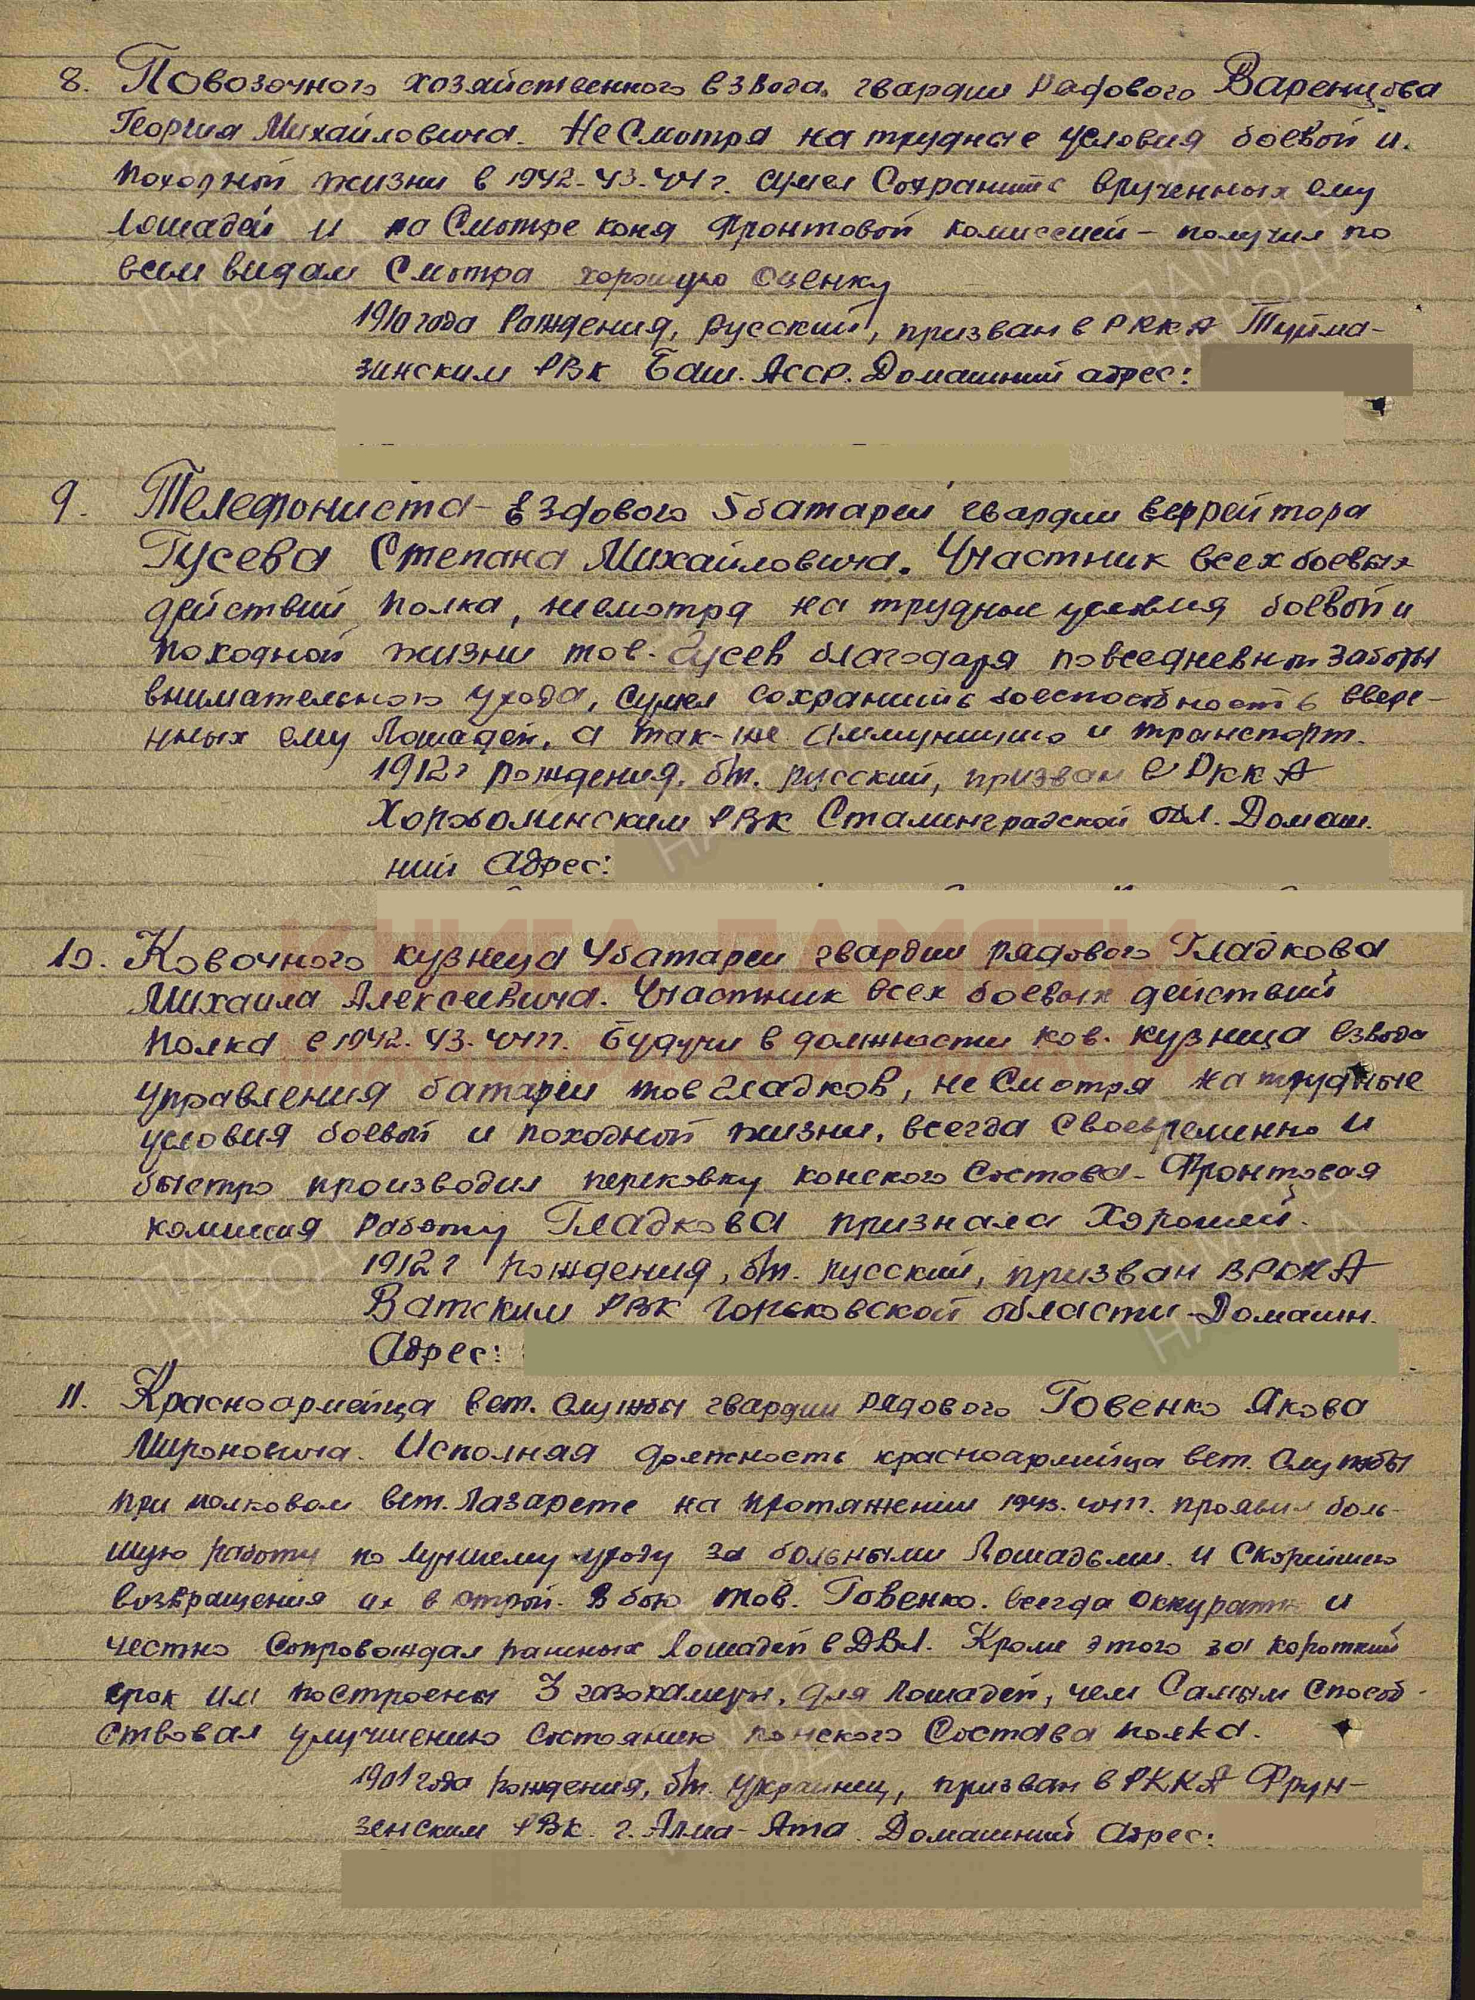 8. Повозочного хозяйственного взвода гвардии рядового Варенцова
Георгия Михайловича. Не Смотря на трудные условия боевой и
походной жизни в 1942-43-44 г. сумел Сохранить врученных ему
лошадей и на Смотре коня Фронтовой комиссией - получил по
всем видам Смотра хорошую оценку
1910 года Рождения, русский, призван в РККА Туйма-
зинским РВК Баш. АССР. Домашний адрес:
9. Телефониста - ездового 5 батареи гвардии ефрейтора
Гусева Степана Михайловича. Участник всех боевых
действий полка, несмотря на трудные условия боевой и
походной жизни тов. Гусев благодаря повседневной заботы
внимательного ухода, сумел сохранить боеспособность ввере-
нных ему Лошадей, а так-же Аммуницию и транспорт.
1912 г рождения, б/п. русский, призван в РККА
РВК Сталинградской обл. Домаш.
ний Адрес:
10. Ковочного кузнеца 4 батареи гвардии рядового Гладкова
Михаила Алексеевича. Участник всех боевых действий
полка в 1942-43-44 гг. Будучи в должности ков. кузнеца взвода
управления батареи тов Гладков, не Смотря на трудные
условия боевой и походной жизни, всегда своевременно и
быстро производил перековку конского Состава - Фронтовая
комиссия работу Гладкова признала Хорошей.
1912 г рождения, б/п. русский, призван в РККА
Ватским РВК Горьковской области - Домашн.
Адрес:
11. Красноармейца вет. службы гвардии рядового Говенко Якова
Мироновича. Исполняя должность красноармейца вет. Службы
при полковом вет. Лазарете на протяжении 1943-44 гг. проявил боль-
шую работу по лучшему уходу за больными Лошадьми и скорейшею
возвращения их в строй. В бою тов. Говенко. всегда оккуратно и
честно Сопровождал раненых Лошадей в ДВЛ. Кроме этого за короткий
срок им построены 3 газокамеры, для лошадей, чем Самым способ-
ствовал улучшению состоянию конского Состава полка.
1901 года рождения, б/п. украинец, призван в РККА Фрун-
зенским РВК. г. Алма-Ата. Домашний Адрес:
ПАМЯТЬ НАРОДА
КНИГА ПАМЯТИ